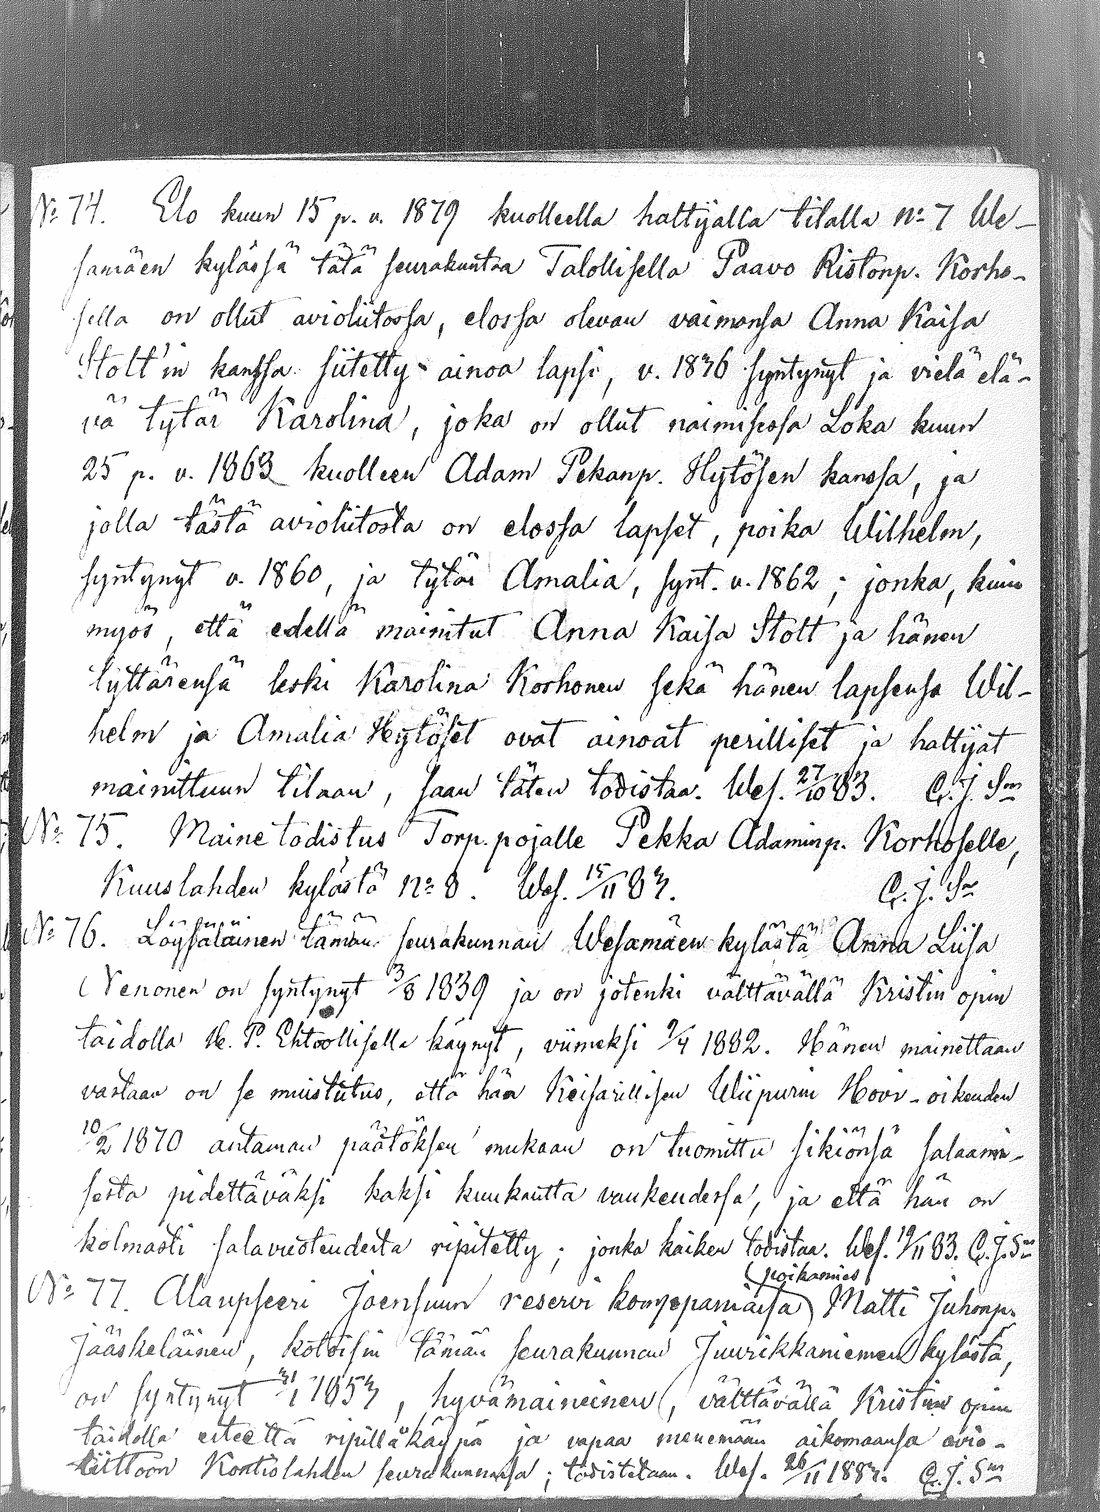 No 74. Elo kuun 15 p. v. 1879 kuolleella haltijalla tilalla no 7 We-
samäen kylässä tätä seurakuntaa Talollisella Paavo Ristonp. Korho-
sella on ollut avioliitossa, elossa olevan vaimonsa Anna Kaisa
Stott'in kanssa siitetty ainoa lapsi, v. 1836 syntynyt ja vielä elä-
vä tytär Karolina, joka on ollut naimisessa Loka kuun
25 p. v. 1863 kuolleen Adam Pekanp. Hytösen kanssa, ja
jolla tästä avioliitosta on elossa lapset, poika Wilhelm,
syntynyt v. 1860, ja tytär Amalia, synt. v. 1862; jonka, kuin
myös, että edellä mainitut Anna Kaisa Stott ja hänen
tyttärensä leski Karolina Korhonen sekä hänen lapsensa Wil-
helm ja Amalia Hytöset ovat ainoat perilliset ja haltijat
mainittuun tilaan, saan täten todistaa. Wes. 27/10 83. C. J. Sm
No 75. Maine todistus Torp. pojalle Pekka Adaminp. Korhoselle,
Kuuslahden kylästä no 8. Wes. 15/11 83. C. J. Sn
No 76. Löysäläinen tämän seurakunnan Wesamäen kylästä Anna Liisa
Nenonen on syntynyt 3/8 1839 ja on jotenki välttävällä Kristin opin
taidolla H. P. Ehtoollisella käynyt, viimeksi 9/4 1882. Hänen mainettaan
vastaan on se muistutus, että hän Keisarillisen Wiipurin Hovi-oikeuden
10/2 1870 antaman päätöksen mukaan on tuomittu sikiönsä salaami-
sesta pidettäväksi kaksi kuukautta vankeudessa, ja että hän on
kolmasti salavuoteudesta ripitetty; jonka kaiken todistaa. Wes. 19/11 83. C. J. Sm
poikamies
No 77. Alaupseeri Joensuun reservi komppaniassa Matti Juhonp.
Jääskeläinen, kotoisin tämän seurakunnan Juurikkaniemen kylästä,
on syntynyt 31/1 1853, hyvämaineinen, välttävällä Kristin opin
taidolla esteettä ripillä käypä ja vapaa menemään aikomaansa avio-
liittoon Kontiolahden seurakunnassa; todistetaan. Wes. 26/11 1883. C. J. Sm